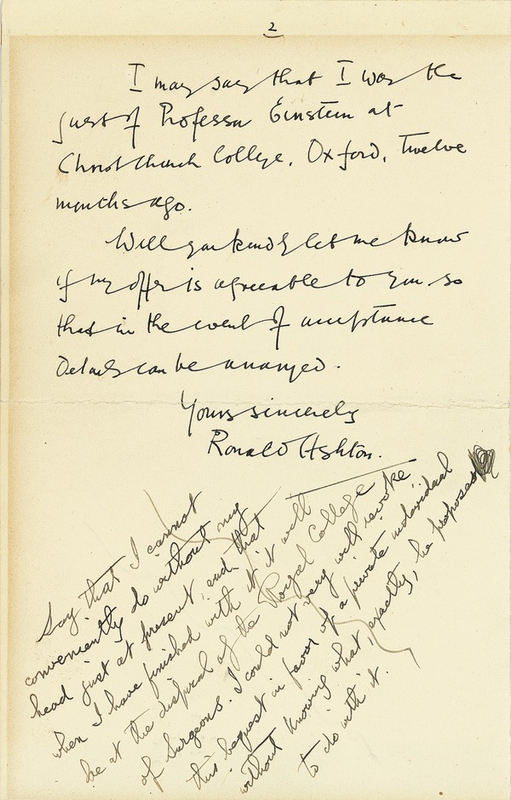 2
I may say that I was the
guest of Professor Einstein at
Christ Church College, Oxford, twelve
months ago.
Will you kindly let me know
if my offer is agreeable to you so
that in the event of acceptance
details can be arranged.
Yours sincerely
Ronald Ashton.
Say that I cannot
conveniently do without my
head just at present, and that
when I have finished with it it will
be at the disposal of the Royal College
of Surgeons. I could not very well revoke
this bequest in favor of a private individual
without knowing what, exactly, he proposes
to do with it.